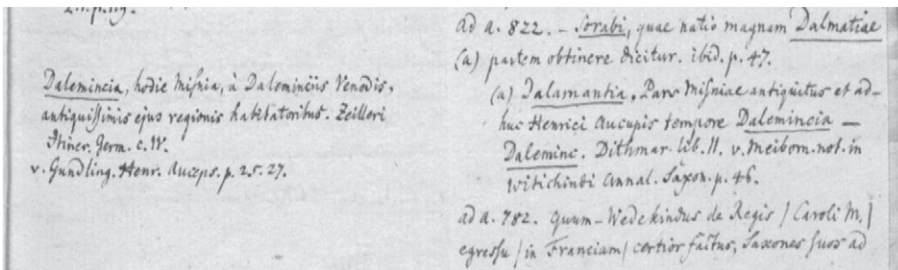 Dalemincia, hodie Misnia, à Daleminciis Venedis,
antiquissimis ejus regionis habitatoribus. Zeilleri
Itiner. Germ. c. IV.
v. Gundling. Henr. Auceps. p. 25. 27.
ad a. 822. – Sorabi, quae natio magnam Dalmatiae
(a) partem obtinere dicitur. ibid. p. 47.
(a) Dalamantia, Pars Misniae antiquitus et ad-
huc Henrici Aucupis tempore Dalemincia –
Daleminc. Dithmar. lib. II. v. Meibom. not. in
Witichindi Annal. Saxon. p. 46.
ad a. 782. Quum – Wedekindus de Regis / Caroli M. /
egressu / in Franciam / certior factus, Saxones suos ad